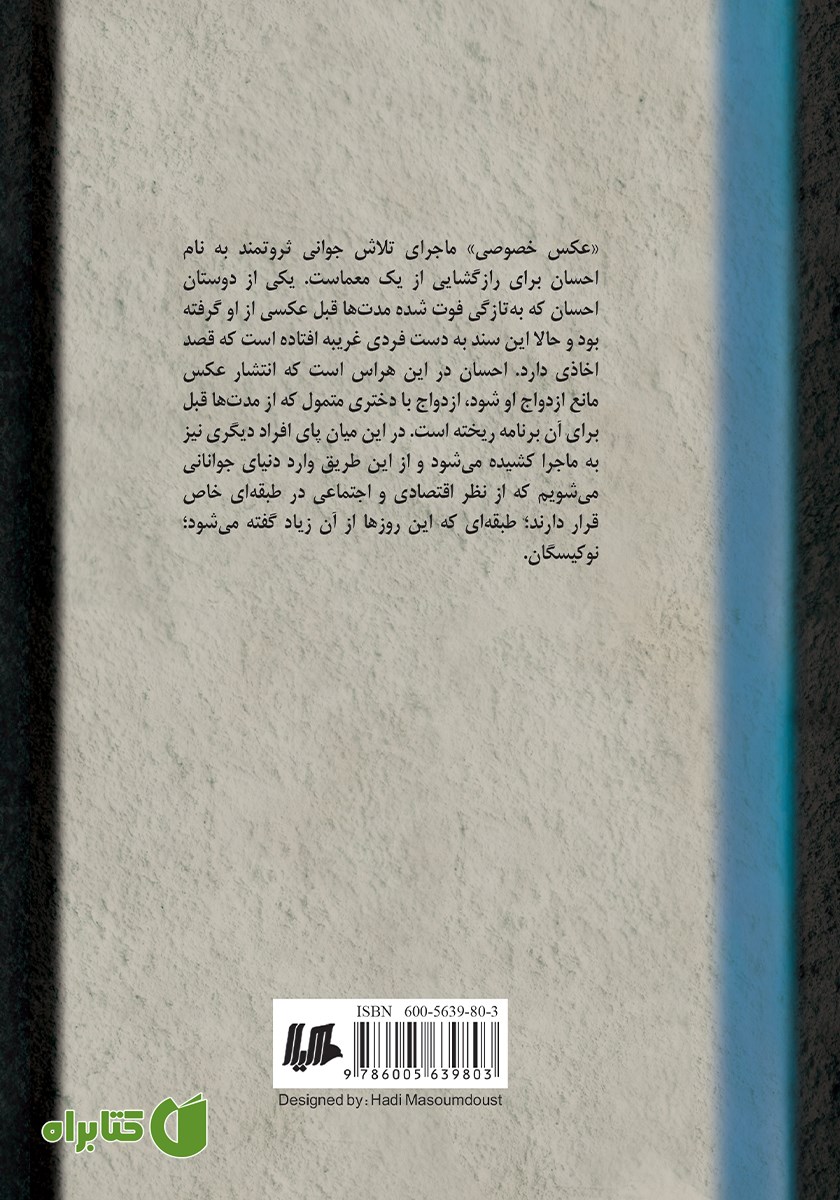 «عکس خصوصی» ماجرای تلاش جوانی ثروتمند به نام
احسان برای رازگشایی از یک معماست. یکی از دوستان
احسان که به‌تازگی فوت شده مدت‌ها قبل عکسی از او گرفته
بود و حالا این سند به دست فردی غریبه افتاده است که قصد
اخاذی دارد. احسان در این هراس است که انتشار عکس
مانع ازدواج او شود، ازدواج با دختری متمول که از مدت‌ها قبل
برای آن برنامه ریخته است. در این میان پای افراد دیگری نیز
به ماجرا کشیده می‌شود و از این طریق وارد دنیای جوانانی
می‌شویم که از نظر اقتصادی و اجتماعی در طبقه‌ای خاص
قرار دارند؛ طبقه‌ای که این روزها از آن زیاد گفته می‌شود؛
نوکیسگان.
ISBN 600-5639-80-3
هیلا
9 786005 639803
Designed by: Hadi Masoumdoust
کتابراه